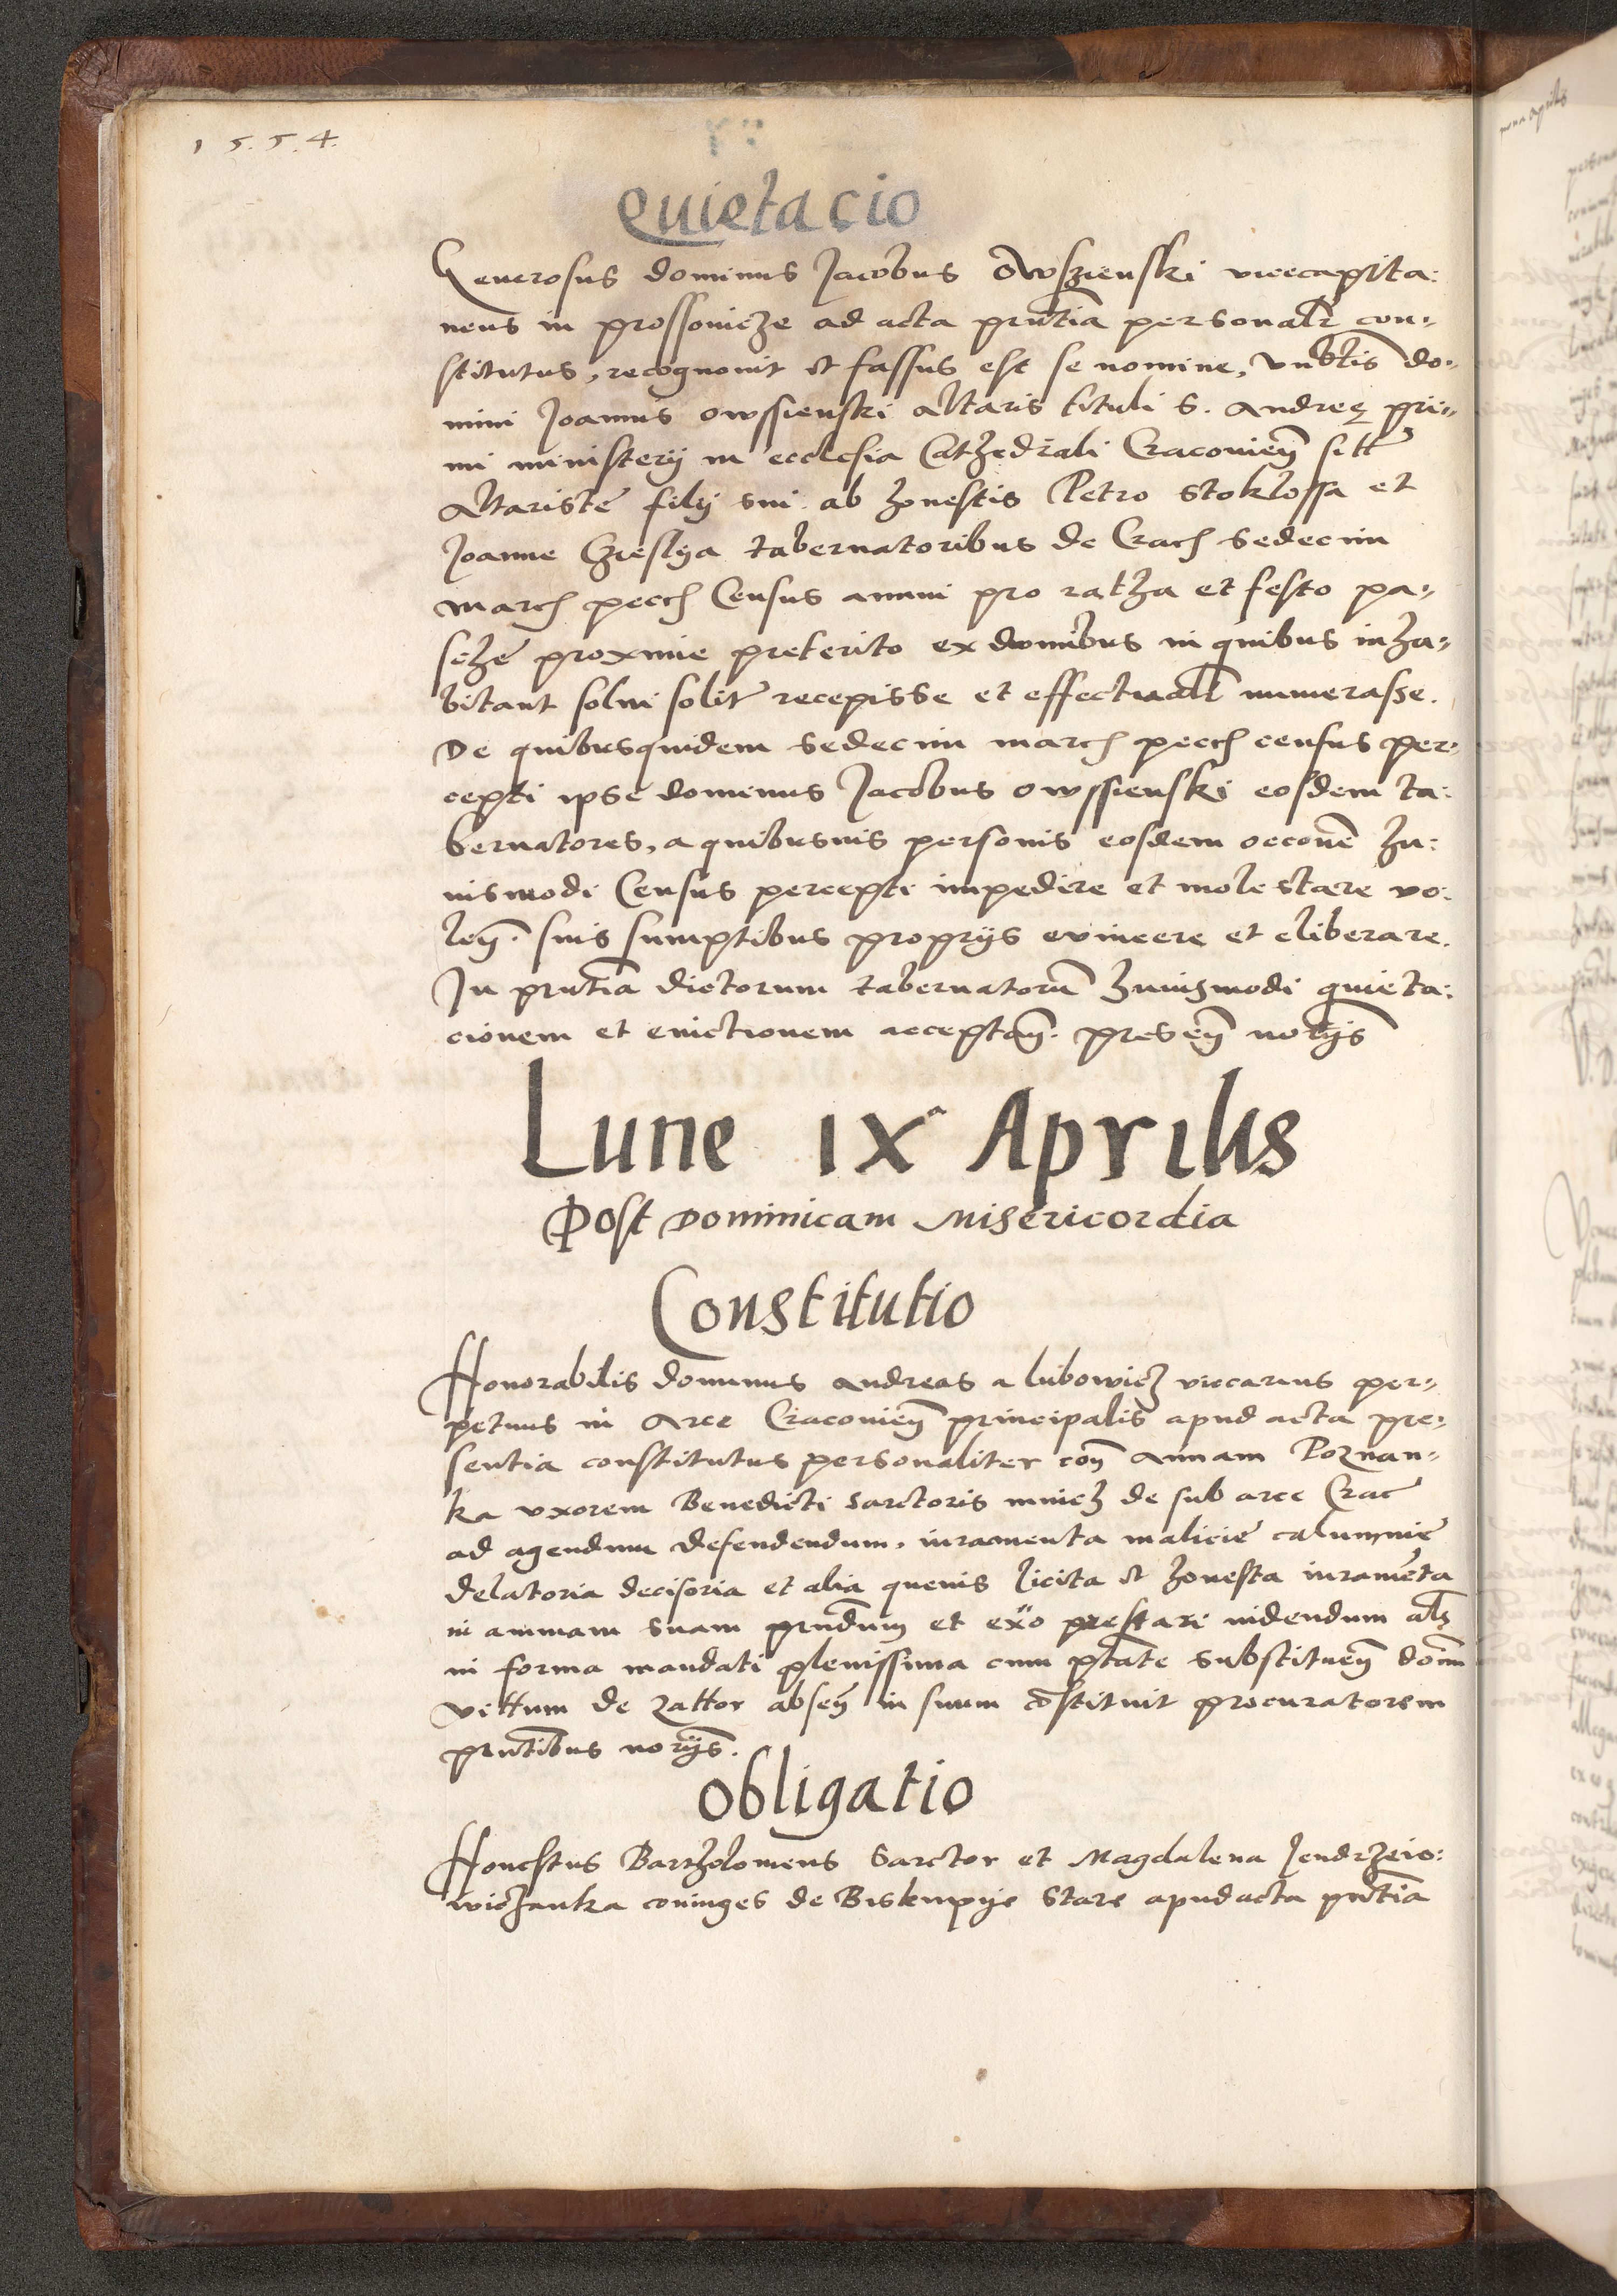 1 5. 5. 4.
Quietacio
Generosus dominus Jacobus Owszienski vicecapita:
neus in prossovicze ad acta pñtia personalr con-
stitutus, recognovit et fassus est se nomine, Vñbtis do-
mini Joannis owssienski altaris tituli S. Andreę pri-
mi ministerij in ecclesia Cathedrali Cracovien sitt
Altariste filij sui ab honestis Petro Stoklossa et
Joanne Czieslya tabernatoribus de Crac sedecim
marc pecc Census annui pro ratha et festo pa-
sche proxime preterito ex domibus in quibus inha-
bitant solvi solit recepisse et effectualr numerasse.
De quibusquidem sedecim marc pecc census per-
cepti ipse dominus Jacobus owssienski eosdem ta:
bernatores, a quibusvis personis eosdem occone hu:
iusmodi Census percepti impedire et molestare vo:
len. suis sumptibus proprijs evincere et eliberare.
In pñtia dictorum tabernatoru huiusmodi quieta:
cionem et evictionem acceptan. presen norijs
Lune ixª Aprilis
Post Dominicam Misericordia
Constitutio
Honorabilis dominus Andreas a lubowicz viccarius per-
petuus in Arce Cracovien principalis apud acta pre-
sentia constitutus personaliter con annam Poznan-
ka uxorem Benedicti Sarctoris mniez de sub arce Crac
ad agendum defendendum, iuramenta malicie calumnie
delatoria decisoria et alia quevis licita et honesta iuramenta
in animam suam prñdum et exo prestari videndum als
in forma mandati plenissima cum ptate substituen dom
vittum de Zattor absen in suum cōstituit procuratorem
pñtibus norijs.
Obligatio
Honestus Bartholomeus Sarctor et Magdalena Jendrzeio:
wiczanka coniuges de Biskupye Stare apud acta pñtia